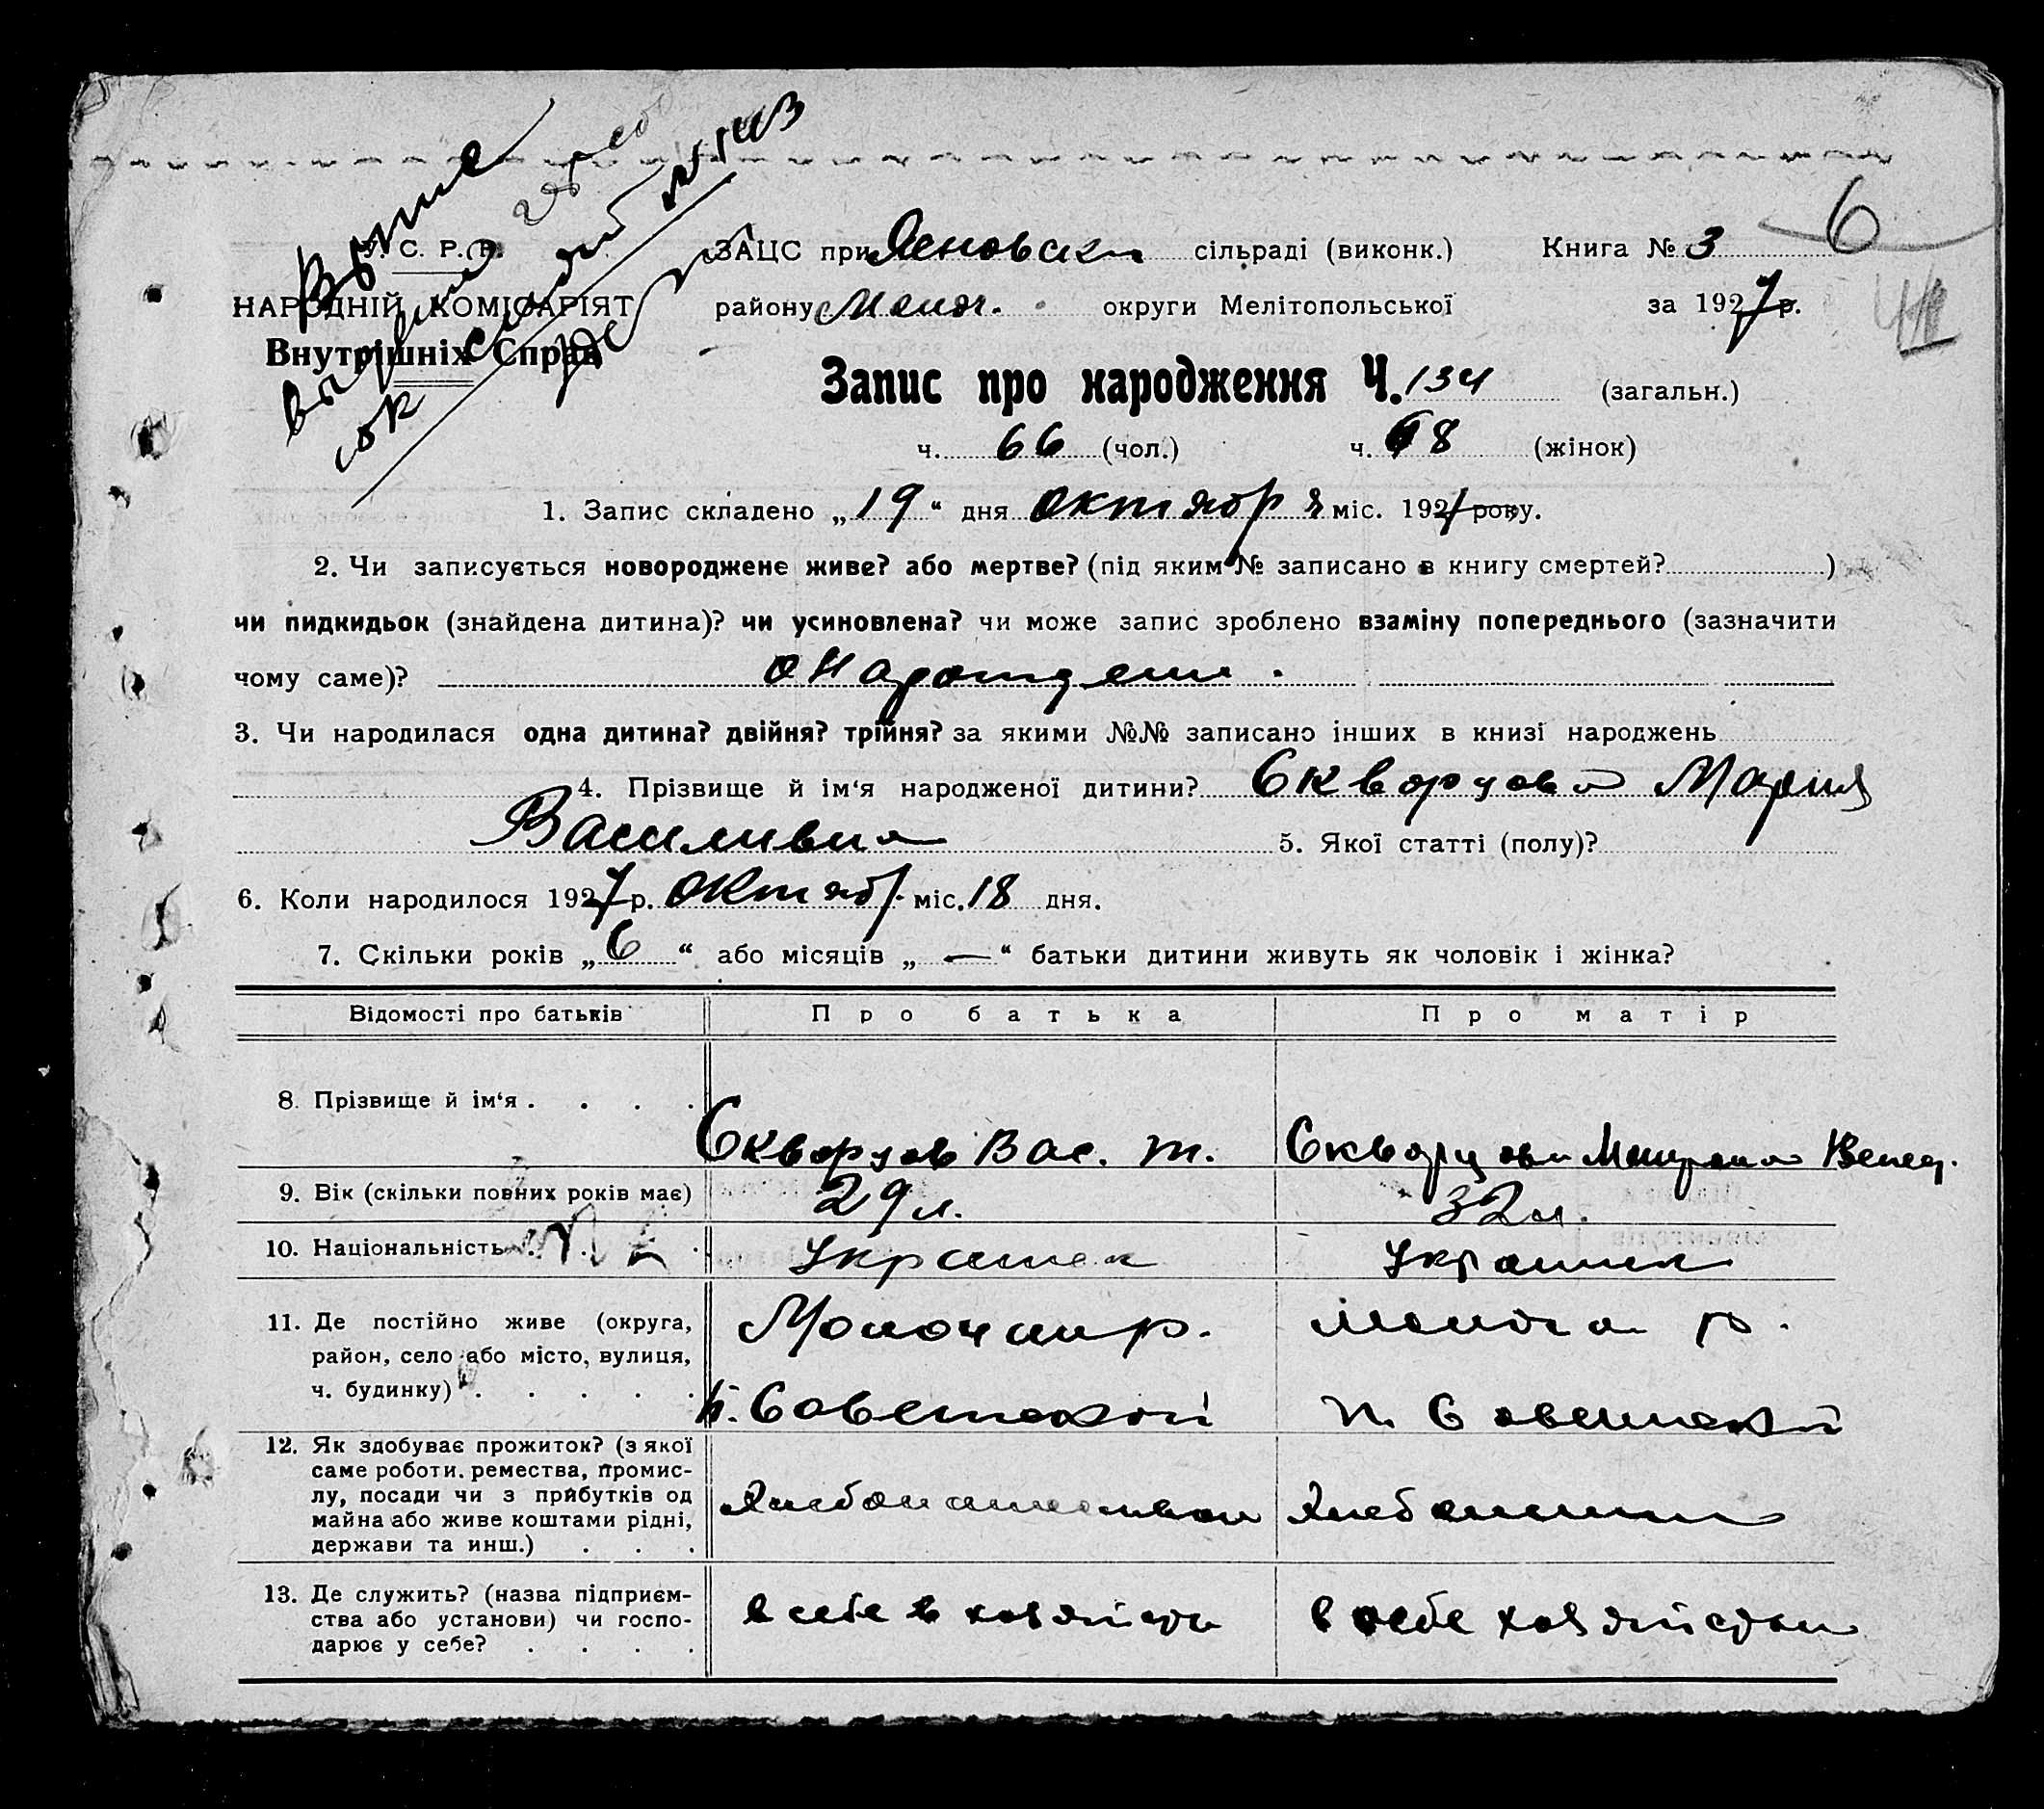 У. С. Р. Р.
НАРОДНІЙ КОМІСАРІЯТ
Внутрішніх Справ
ЗАЦС при сільраді (виконк.) Книга № 3 6
району округи Мелітопольської за 1927 р.
Запис про народження Ч. 134 (загальн.)
ч. 66 (чол.) ч. 68 (жінок)
1. Запис складено „19“ дня октября міс. 1927 року.
2. Чи записується новороджене живе? або мертве? (під яким № записано в книгу смертей? )
чи пидкидьок (знайдена дитина)? чи усиновлена? чи може запис зроблено взаміну попереднього (зазначити
чому саме)? о
3. Чи народилася одна дитина? двійня? трійня? за якими №№ записано інших в книзі народжень
4. Прізвище й ім‘я народженої дитини? Скворцова Мария
Василивна 5. Якої статті (полу)?
6. Коли народилося 1927 р. октяб. міс. 18 дня.
7. Скільки років „6“ або місяців „—“ батьки дитини живуть як чоловік і жінка?
Відомості про батьків Про батька Про матір
8. Прізвище й ім‘я . . . . Скворцов Вас. Т. Скворцова
9. Вік (скільки повних років має) 29 л. 32 л.
10. Національність . . . Украинек Украинек
11. Де постійно живе (округа,
район, село або місто, вулиця,
ч. будинку) . . . . .
п. Советской п. Советской
12. Як здобуває прожиток? (з якої
саме роботи, ремества, промис-
лу, посади чи з прибутків од
майна або живе коштами рідні,
держави та инш.) . . .
13. Де служить? (назва підприєм-
ства або установи) чи госпо-
дарює у себе? . . . .
в себе в в себе